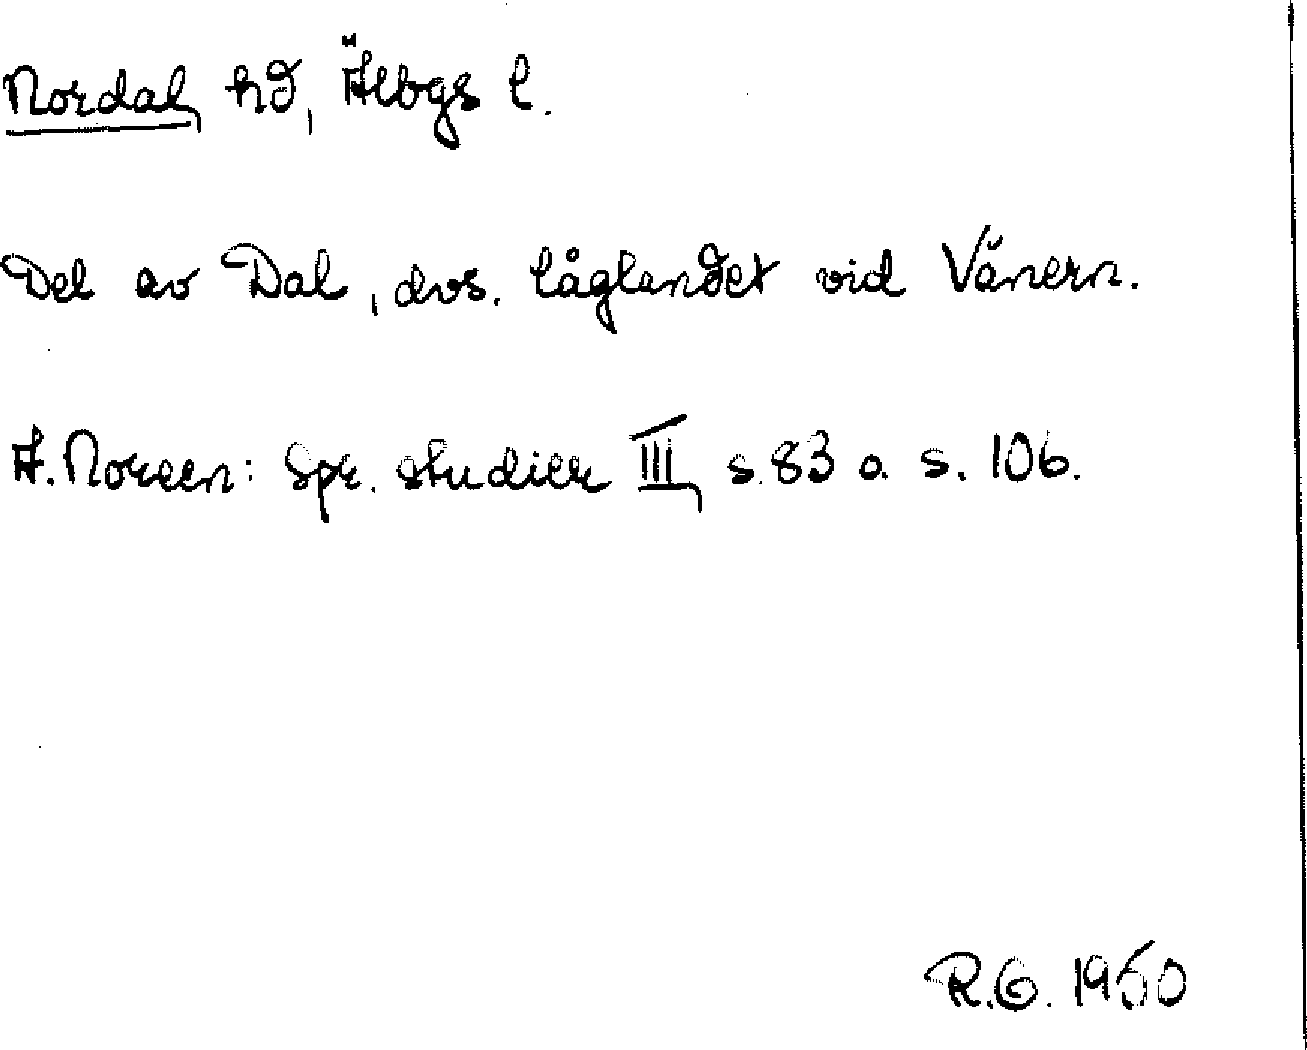 Nordal, hd, Älvbgs l.
Del av Dal, dvs. låglandet vid Vänern.
A. Noreen: Spr. studier III, s. 83 o. s. 106.
R.G. 1950